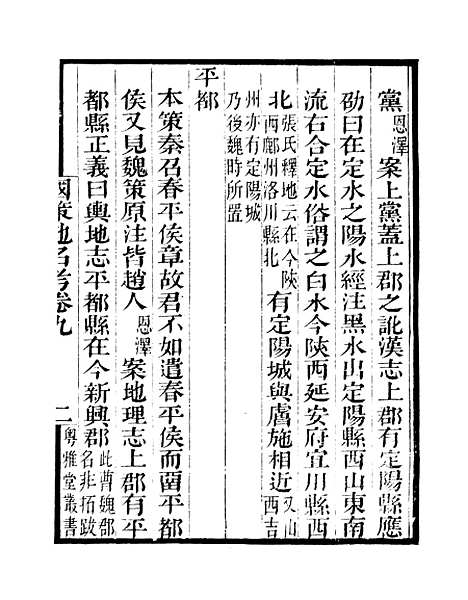 黨恩澤案上黨蓋上郡之訛漢志上郡有定陽縣應
劭曰在定水之陽水經注黑水出定陽縣西山東南
流右合定水俗謂之白水今陝西延安府宜川縣西
北張氏釋地云在今陝西鄜州洛川縣北有定陽城與膚施相近又山西吉
州亦有定陽城乃後魏時所置
平都
本策秦召春平侯章故君不如遣春平侯而畱平都
侯又見魏策原注皆趙人恩澤案地理志上郡有平
都縣正義曰輿地志平都縣在今新興郡此曹魏郡名非拓跋
國策地名考卷九
二
粵雅堂叢書